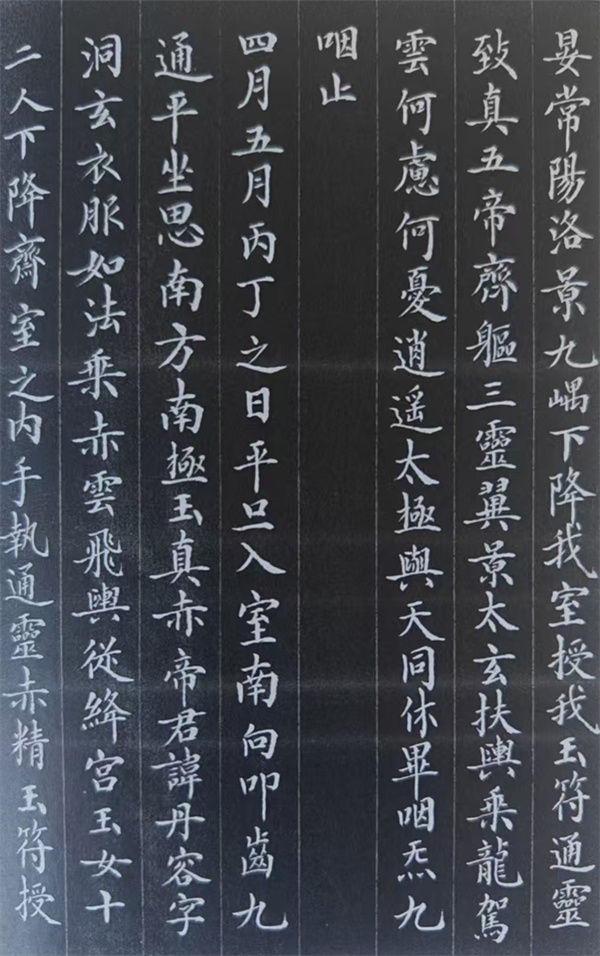 晏常陽洛景九嵎下降我室授我玉符通靈
致真五帝齊軀三靈翼景太玄扶輿乘龍駕
雲何慮何憂逍遥太極與天同休畢咽炁九
咽止
四月五月丙丁之日平旦入室南向叩齒九
通平坐思南方南極玉真赤帝君諱丹容字
洞玄衣服如法乘赤雲飛輿從絳宮玉女十
二人下降齋室之内手執通靈赤精玉符授